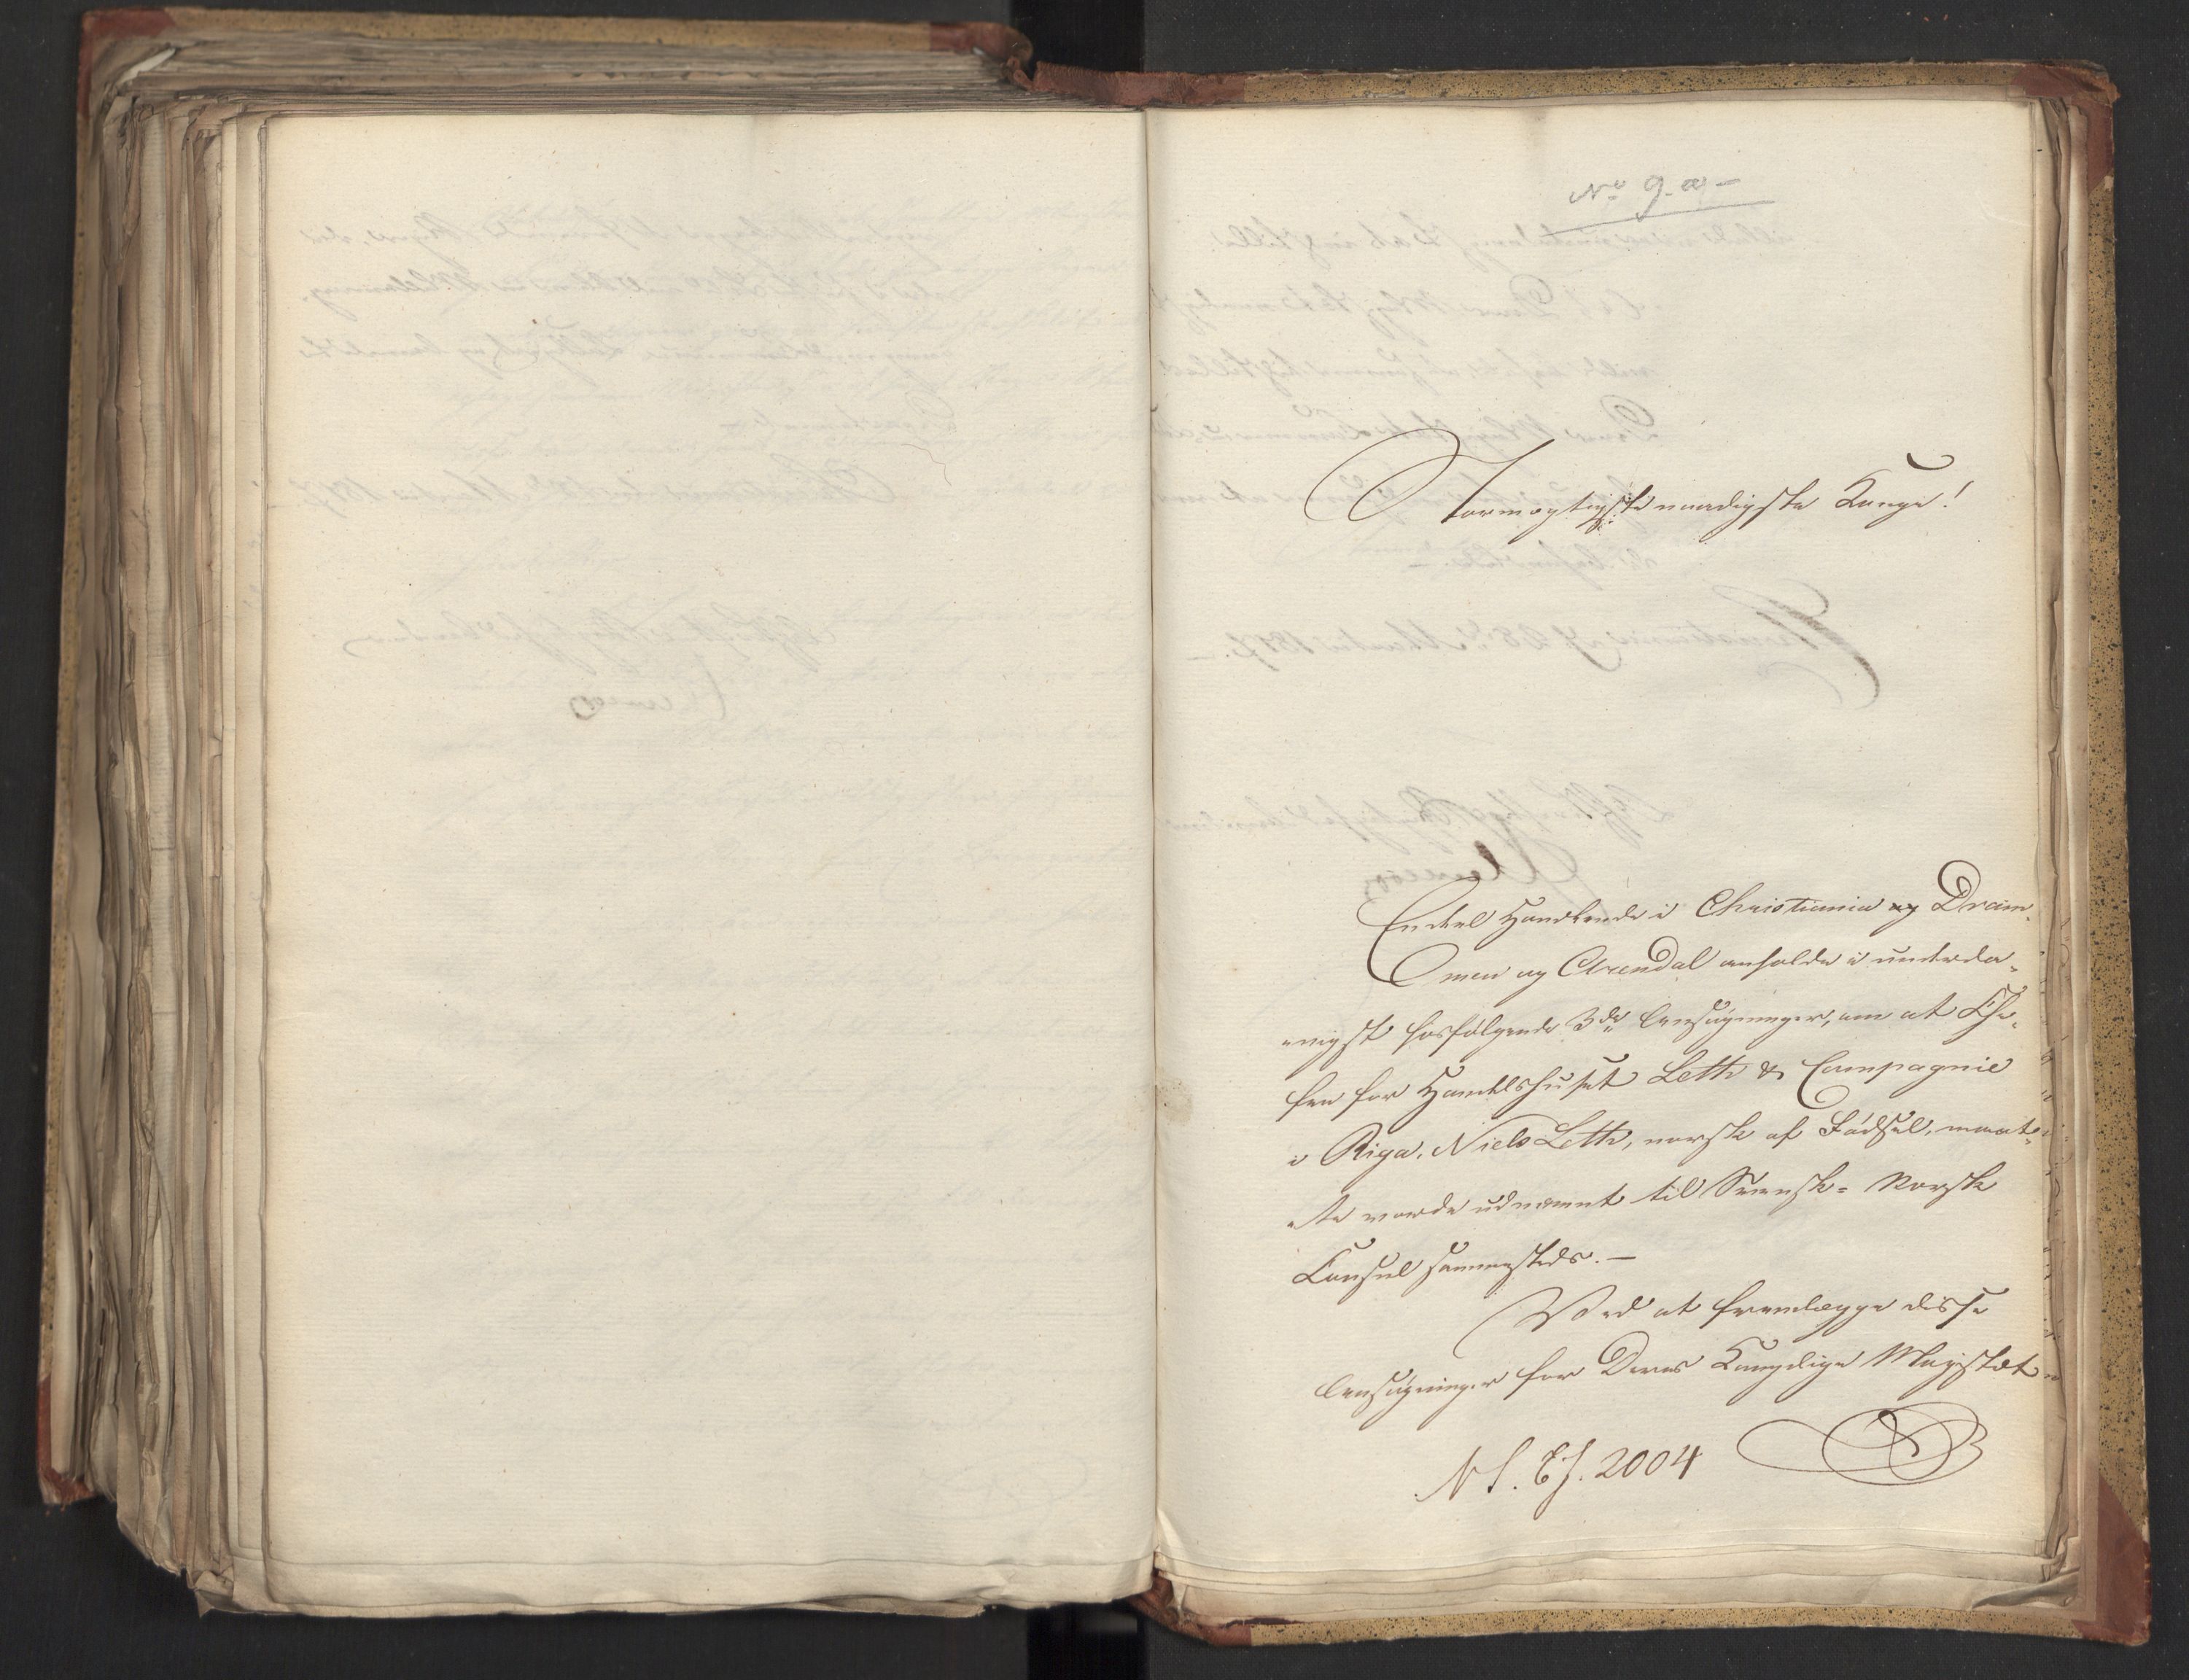 No 9. a –
Stormægtigste naadigste Konge!
Endeel Handlende i Christiania og Dram-
men og Arendal anholde i underda-
nigst hosfølgende 3de Ansøgninger, om at Che-
fen for Handelshuset Leth & Compagnie
i Riga, Niels Leth, norsk af Fødsel, maat-
te vorde udnævnt til Svensk-Norsk
Consul sammesteds. –
Ved at fremlægge disse
Ansøgninger for Deres Kongelige Majestæt
2004